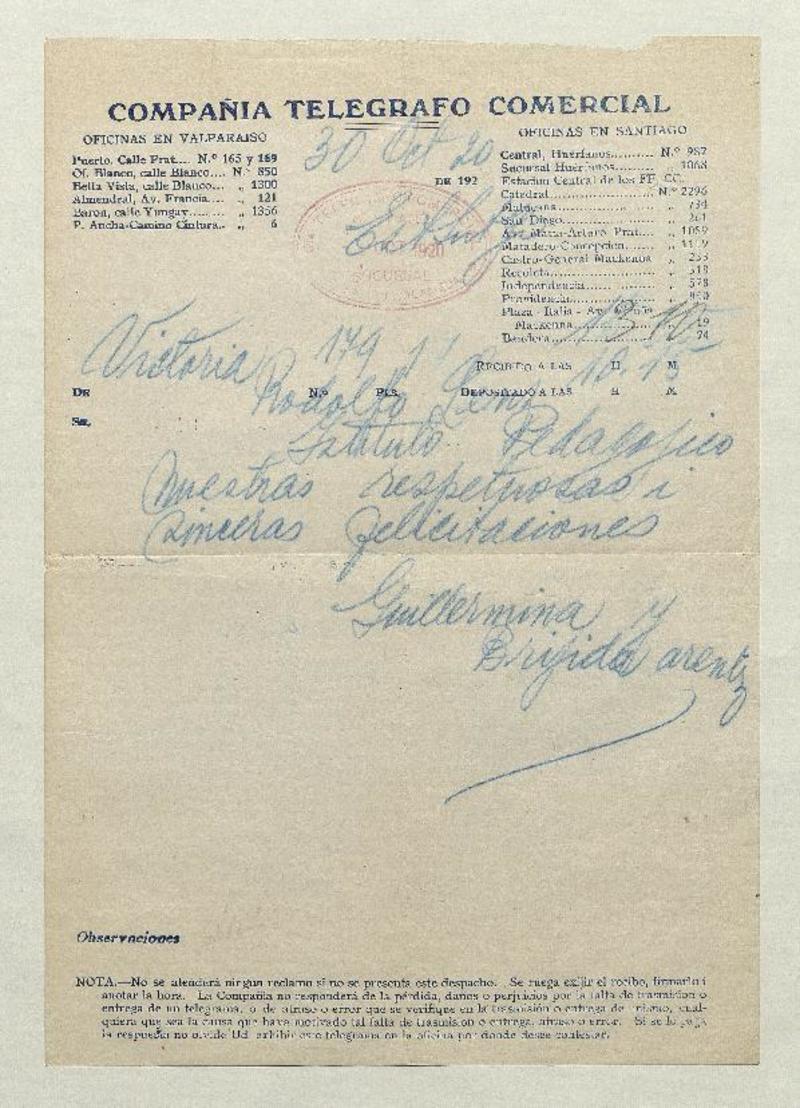 COMPAÑIA TELEGRAFO COMERCIAL
OFICINAS EN VALPARAISO
Puerto, Calle Prat.... N.º 165 y 169
Of. Blanco, calle Blanco.... N.º 850
Bella Vista, calle Blanco... „ 1300
Almendral, Av. Francia..... „ 121
Baron, calle Yungay........ „ 1356
P. Ancha-Camino Cintura.. „ 6
30 Oct 20
DE 192
1920
SUCURSAL
OFICINAS EN SANTIAGO
Central, Huérfanos.......... N.º 987
Sucursal Huérfanos.... „ 1068
Estacion Central de los FF. CC.
Catedral................ N.º 2296
Matucana............... „ 734
San Diego............... „ 261
Av. Matta-Arturo Prat.... „ 1059
Matadero-Concepcion..... „ 1159
Castro-General Mackenna „ 233
Recoleta................ „ 318
Independencia........... „ 578
Providencia............. „
Plaza - Italia - Av.
Mackenna......... „ 19
Bandera................ „ 74
Victoria 179 11
RECIBIDO A LAS H M
DE N.º Pls. DEPOSITADO A LAS H M
Rodolfo Lenz
Sr.
Istituto Pedagojico
Nuestras respetuosas i
sinceras felicitaciones
Guillermina y
Brijida arentz
Observaciones
NOTA.—No se atenderá ningun reclamo si no se presenta este despacho. Se ruega exijir el recibo, firmarlo i
anotar la hora. La Compañia no responderá de la pérdida, danos o perjuicios por la falta de trasmision o
entrega de un telegrama, o de atraso o error que se verifique en la trasmisión o entrega del mismo, cual-
quiera que sea la causa que haya motivado tal falta de trasmision o entrega, atraso o error. Si se le paga
la respuesta no olvide Ud. exhibir este telegrama en la oficina por donde desee contestar.